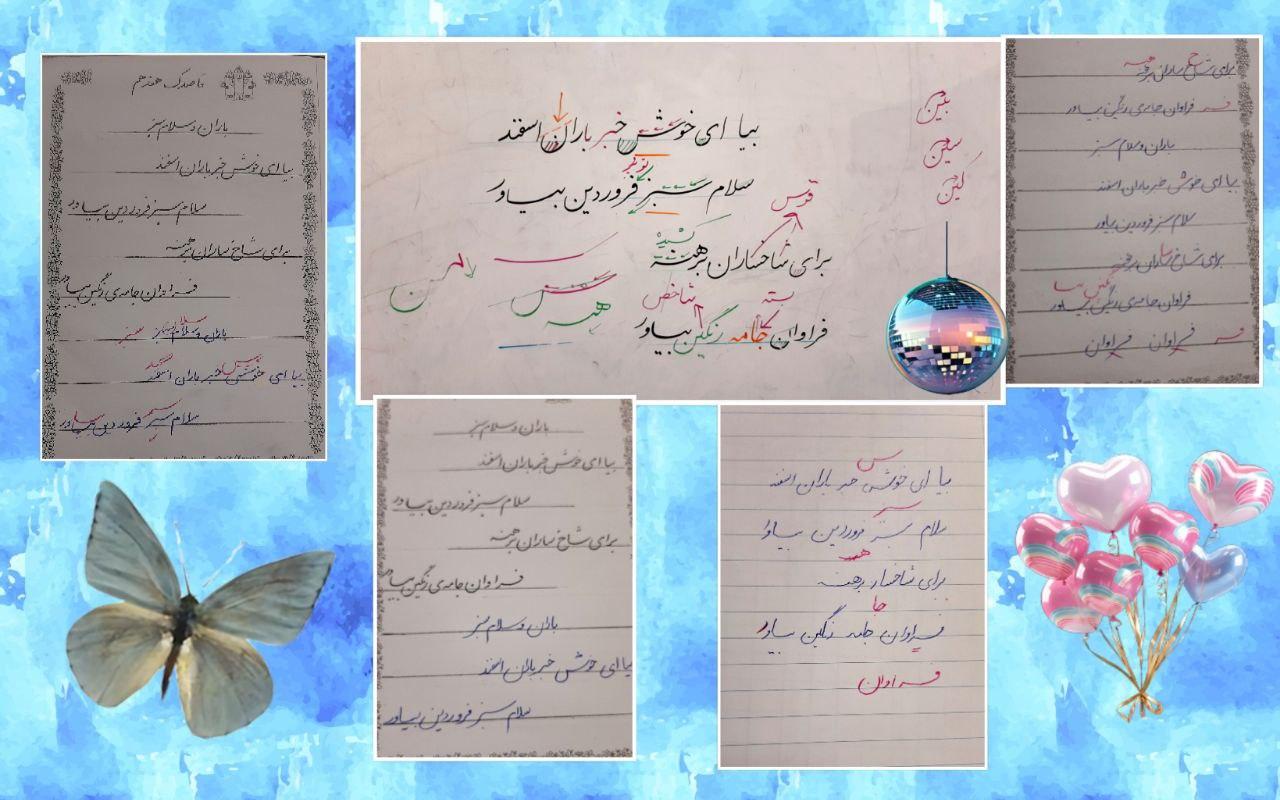 قاصدک هفدهم
باران و سلام سبز
بیا ای خوش خبر باران اسفند
سلام سبز فروردین بیاور
برای شاخساران برهنه
فراوان جامه‌ی رنگین بیاور
باران و سلام سبز
سبز
بیا ای خوش خبر باران اسفند
سلام سبز فروردین بیاور
بیا ای خوش خبر باران اسفند
سلام سبز فروردین بیاور
قوس
کشیده
برای شاخساران برهنه
شاخص
بسته
فراوان جامه رنگین بیاور
هبه
برای شاخساران برهنه
فراوان جامه‌ی رنگین بیاور
باران و سلام سبز
بیا ای خوش خبر باران اسفند
سلام سبز فروردین بیاور
برای شاخساران برهنه
فراوان جامه‌ی رنگین بیاور
فراوان فراوان
باران و سلام سبز
بیا ای خوش خبر باران اسفند
سلام سبز فروردین بیاور
برای شاخساران برهنه
فراوان جامه‌ی رنگین بیاور
باران و سلام سبز
بیا ای خوش خبر باران اسفند
سلام سبز فروردین بیاور
س
بیا ای خوش خبر باران اسفند
سلام سبز فروردین بیاور
هنه
برای شاخسار برهنه
جا
فراوان جامه رنگین بیاور
فراوان